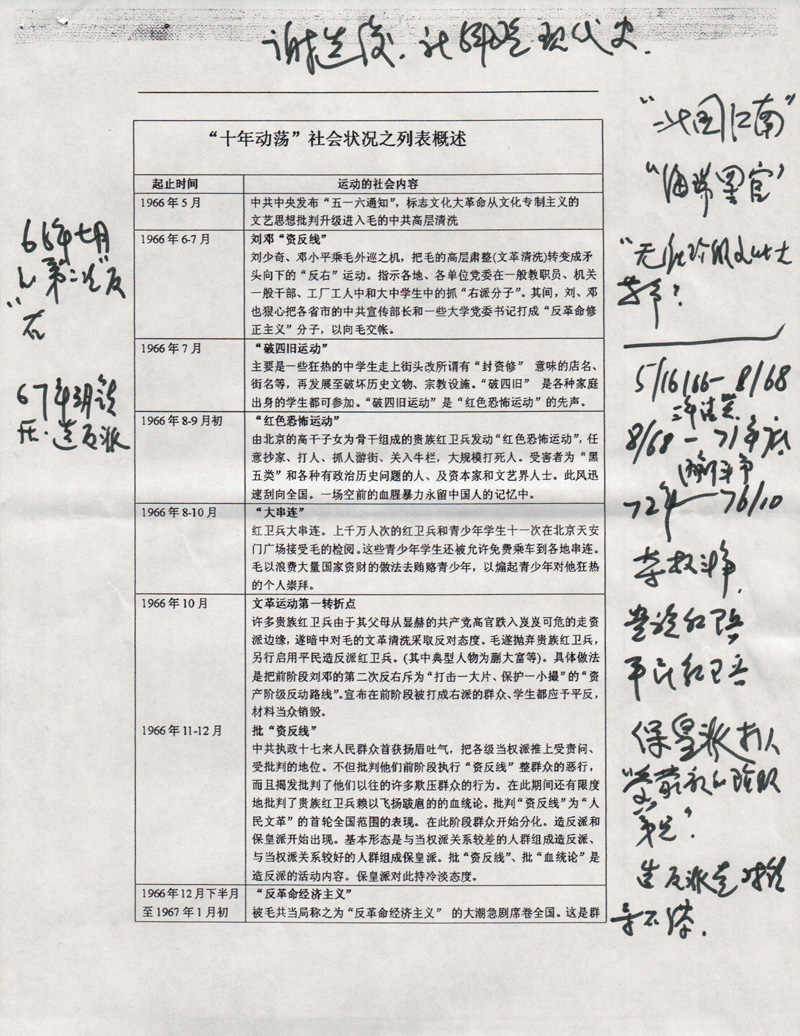 谢选骏.
现代史.
“十年动荡”社会状况之列表概述
起止时间 运动的社会内容
1966 年 5 月 中共中央发布“五一六通知”，标志文化大革命从文化专制主义的
文艺思想批判升级进入毛的中共高层清洗
1966 年 6-7 月 刘邓“资反线”
刘少奇、邓小平乘毛外巡之机，把毛的高层肃整(文革清洗)转变成矛
头向下的“反右”运动。指示各地、各单位党委在一般教职员、机关
一般干部、工厂工人中和大中学生中的抓“右派分子”。其间，刘、邓
也狠心把各省市的中共宣传部长和一些大学党委书记打成“反革命修
正主义”分子，以向毛交帐。
1966 年 7 月 “破四旧运动”
主要是一些狂热的中学生走上街头改所谓有“封资修” 意味的店名、
街名等，再发展至破坏历史文物、宗教设施。“破四旧” 是各种家庭
出身的学生都可参加。“破四旧运动”是“红色恐怖运动”的先声。
1966 年 8-9 月初 “红色恐怖运动”
由北京的高干子女为骨干组成的贵族红卫兵发动“红色恐怖运动”，任
意抄家、打人、抓人游街、关入牛栏，大规模打死人。受害者为“黑
五类”和各种有政治历史问题的人、及资本家和文艺界人士。此风迅
速刮向全国。一场空前的血腥暴力永留中国人的记忆中。
1966 年 8-10 月 “大串连”
红卫兵大串连。上千万人次的红卫兵和青少年学生十一次在北京天安
门广场接受毛的检阅。这些青少年学生还被允许免费乘车到各地串连。
毛以浪费大量国家资财的做法去贿赂青少年，以煽起青少年对他狂热
的个人崇拜。
1966 年 10 月 文革运动第一转折点
许多贵族红卫兵由于其父母从显赫的共产党高官跌入岌岌可危的走资
派边缘，遂暗中对毛的文革清洗采取反对态度。毛遂抛弃贵族红卫兵，
另行启用平民造反派红卫兵。(其中典型人物为蒯大富等)。具体做法
是把前阶段刘邓的第二次反右斥为“打击一大片、保护一小撮”的“资
产阶级反动路线”。宣布在前阶段被打成右派的群众、学生都应予平反，
材料当众销毁。
1966 年 11-12 月 批“资反线”
中共执政十七来人民群众首获扬眉吐气，把各级当权派推上受责问、
受批判的地位。不但批判他们前阶段执行“资反线”整群众的恶行，
而且揭发批判了他们以往的许多欺压群众的行为。在此期间还有限度
地批判了贵族红卫兵赖以飞扬跋扈的的血统论。批判“资反线”为“人
民文革”的首轮全国范围的表现。在此阶段群众开始分化。造反派和
保皇派开始出现。基本形态是与当权派关系较差的人群组成造反派、
与当权派关系较好的人群组成保皇派。批“资反线”、批“血统论”是
造反派的活动内容。保皇派对此持冷淡态度。
1966 年 12 月下半月 “反革命经济主义”
至 1967 年 1 月初 被毛共当局称之为“反革命经济主义” 的大潮急剧席卷全国。这是群
66年七月
第二次“反
右
67年
造反派
江南”
“海瑞罢官”
“无产阶级文化大
革命?
5/16/66— 8/68
8/68 — 71年底
72年 — 76/10
夺权斗争,
贵族红卫兵
平民红卫兵
保皇派 打人
造反派